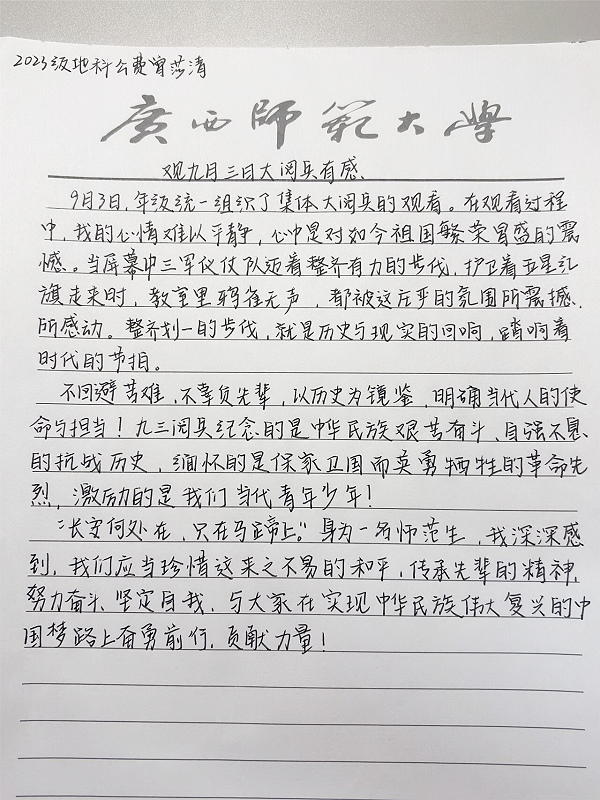 2023级地科公费曾莎清
廣西師範大學
观九月三日大阅兵有感、
9月3日,年级统一组织了集体大阅兵的观看。在观看过程
中,我的心情难以平静,心中是对如今祖国繁荣昌盛的震
憾。当屏幕中三军仪仗队迈着整齐有力的步伐,护卫着五星红
旗走来时,教室里鸦雀无声,都被这庄严的氛围所震撼、
所感动。整齐划一的步伐,就是历史与现实的回响,踏响着
时代的节拍。
不回避苦难,不辜负先辈,以历史为镜鉴,明确当代人的使
命与担当!九三阅兵纪念的是中华民族艰苦奋斗、自强不息
的抗战历史,缅怀的是保家卫国而英勇牺牲的革命先
烈,激励的是我们当代青年少年!
“长安何处在,只在马蹄上。”身为一名师范生,我深深感
到,我们应当珍惜这来之不易的和平,传承先辈的精神,
努力奋斗、坚定自我,与大家在实现中华民族伟大复兴的中
国梦路上奋勇前行,贡献力量!